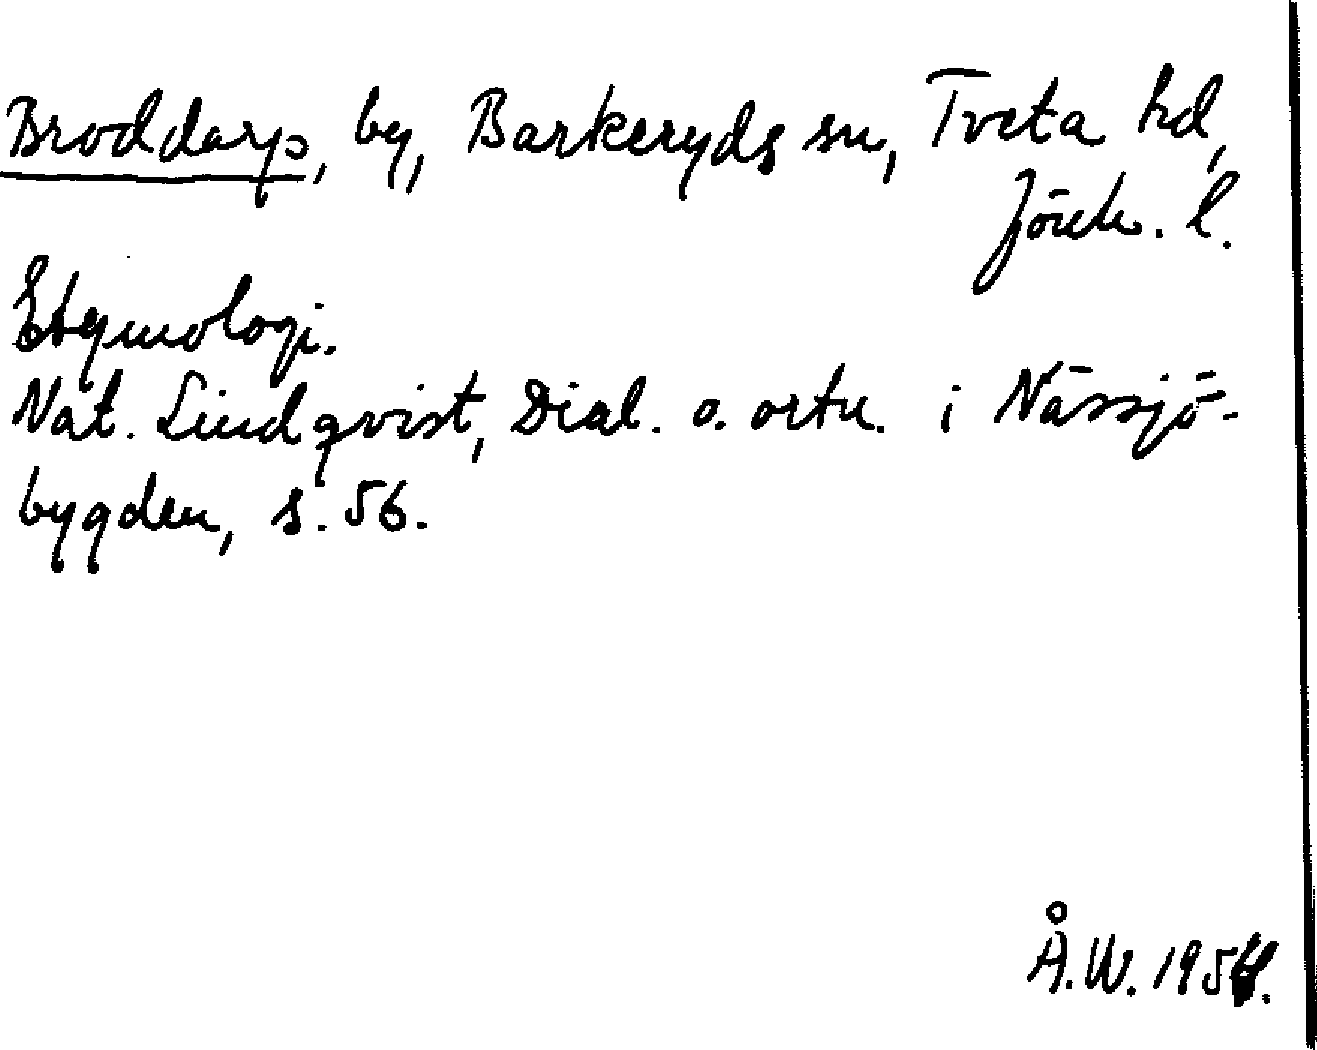 Broddarp, by, Barkeryds sn, Tveta hd,
Jönk. l.
Etymologi.
Nat. Lindqvist, Dial. o. ortn. i Nässjö-
bygden, s. 56.
Å.W. 1954.